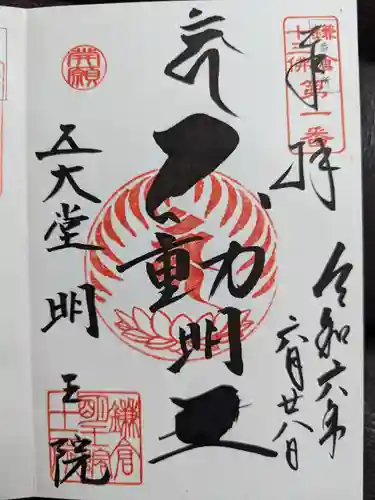 鎌倉
十三佛
第一番
奉拝
令和六年
六月廿八日
不動明王
五大堂明王院